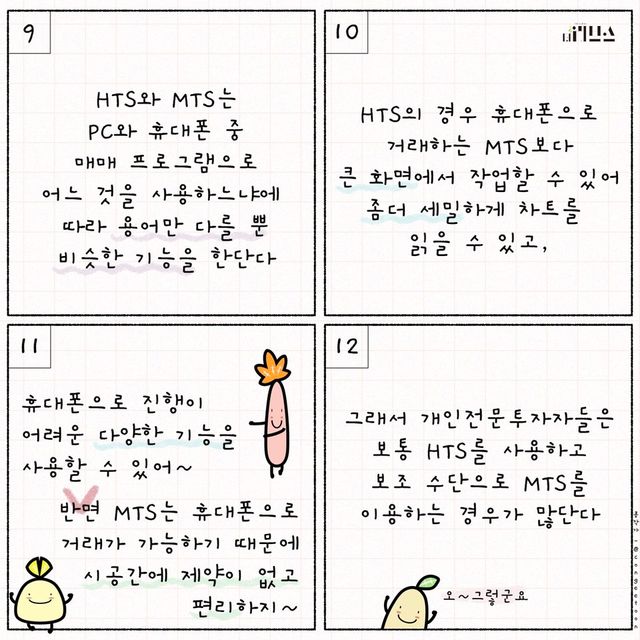 9
HTS와 MTS는
PC와 휴대폰 중
매매 프로그램으로
어느 것을 사용하느냐에
따라 용어만 다를 뿐
비슷한 기능을 한단다
10
HTS의 경우 휴대폰으로
거래하는 MTS보다
큰 화면에서 작업할 수 있어
좀더 세밀하게 차트를
읽을 수 있고,
11
휴대폰으로 진행이
어려운 다양한 기능을
사용할 수 있어~
반면 MTS는 휴대폰으로
거래가 가능하기 때문에
시공간에 제약이 없고
편리하지~
12
그래서 개인전문투자자들은
보통 HTS를 사용하고
보조 수단으로 MTS를
이용하는 경우가 많단다
오~그렇군요